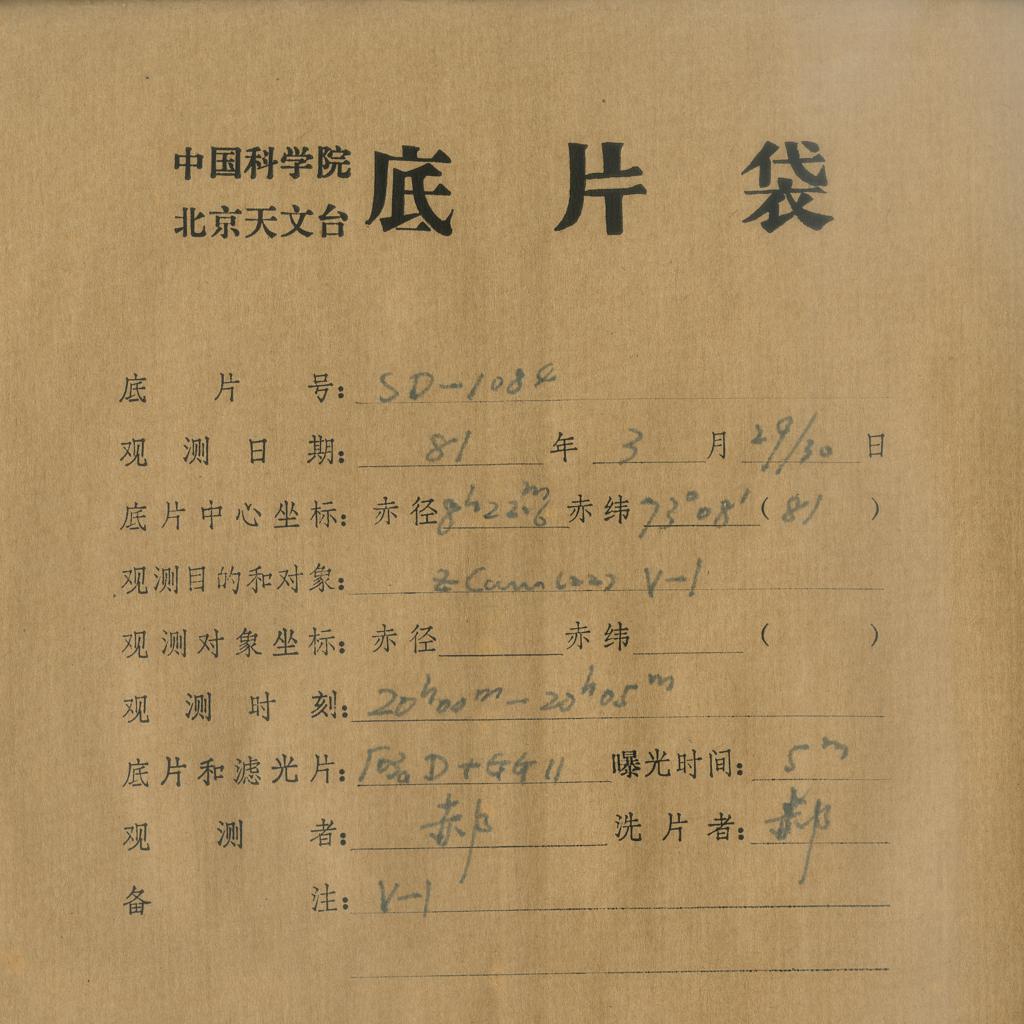 中国科学院
北京天文台
底片袋
底片号: SD-1084
观测日期: 81 年 3 月 29/30 日
底片中心坐标: 赤径 8h22m.6 赤纬 73°08′ ( 81 )
观测目的和对象: Z Cam V-1
观测对象坐标: 赤径 赤纬 ( )
观测时刻: 20h00m-20h05m
底片和滤光片: D+GG11 曝光时间: 5m
观测者: 郝 洗片者: 郝
备注: V-1